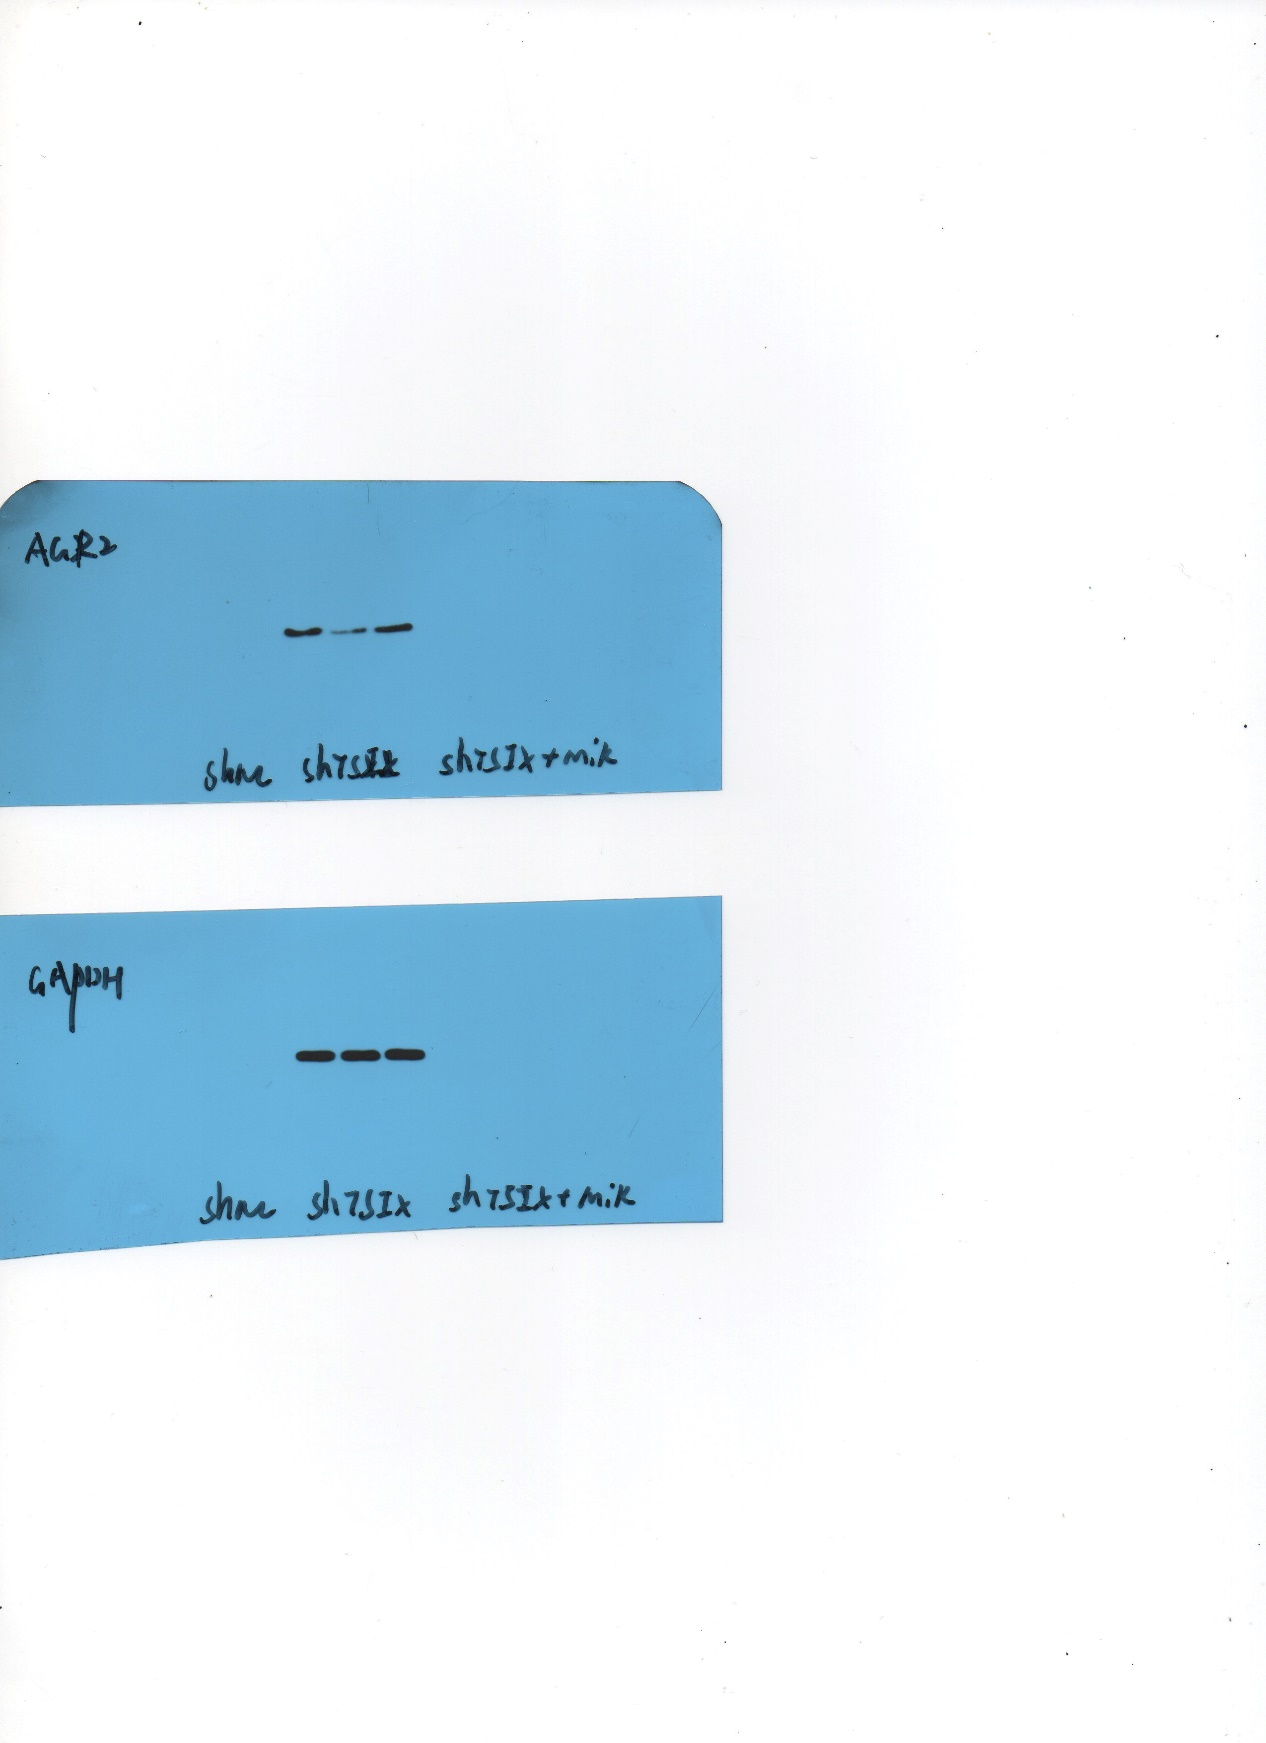 AGR2
shNC shTSIX shTSIX+miR
GAPDH
shNC shTSIX shTSIX+miR